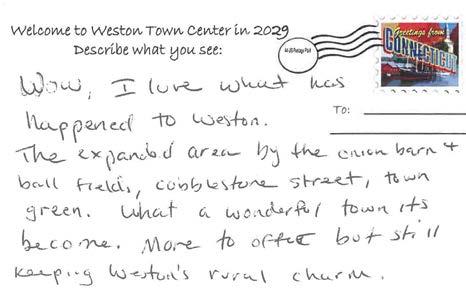 Welcome to Weston Town Center in 2029
Describe what you see:
All US Postage Paid
Greetings from
CONNECTICUT
To:
Wow, I love what has
happened to Weston.
The expanded area by the onion barn +
ball fields, cobblestone street, town
green. What a wonderful town its
become. More to offer but still
keeping Weston's rural charm.